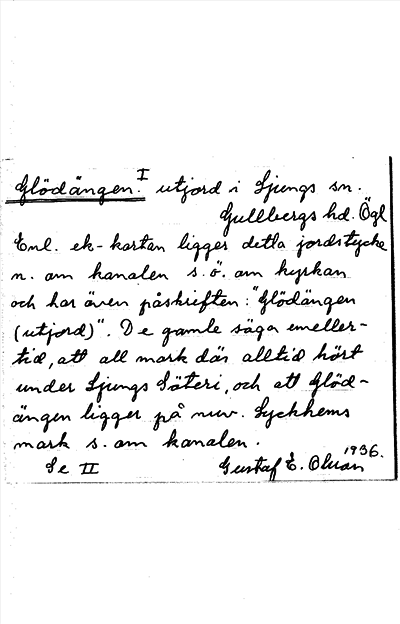 Glödängen. I utjord i Ljungs sn.
Gullbergs hd. Ögl
Enl. ek-kartan ligger detta jordstycke
n. om kanalen s.ö. om kyrkan
och har även påskriften: "Glödängen
(utjord)". De gamle säga emeller-
tid, att all mark där alltid hört
under Ljungs Säteri, och att Glöd-
ängen ligger på nuv. Lyckhems
mark s. om kanalen.
Se II Gustaf E. Olsson 1936.